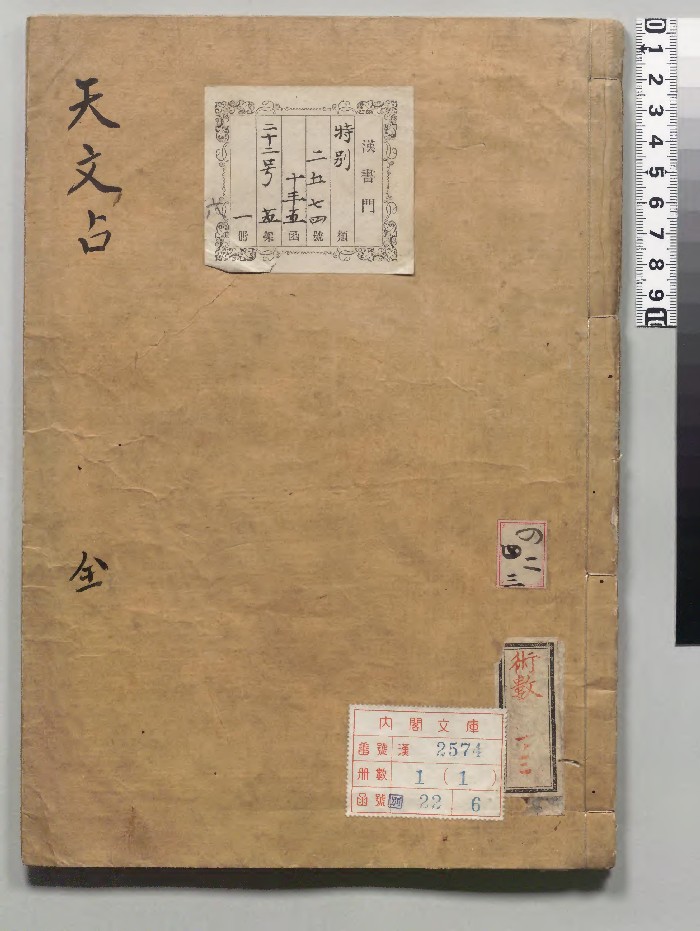 天文占
全
漢書門
特別
類
二五七四
號
函
二十二号
架
一
冊
の二
四三
術數
内閣文庫
番號 漢 2574
冊數 1 (1)
函號 22 6
0 1 2 3 4 5 6 7 8 9 10